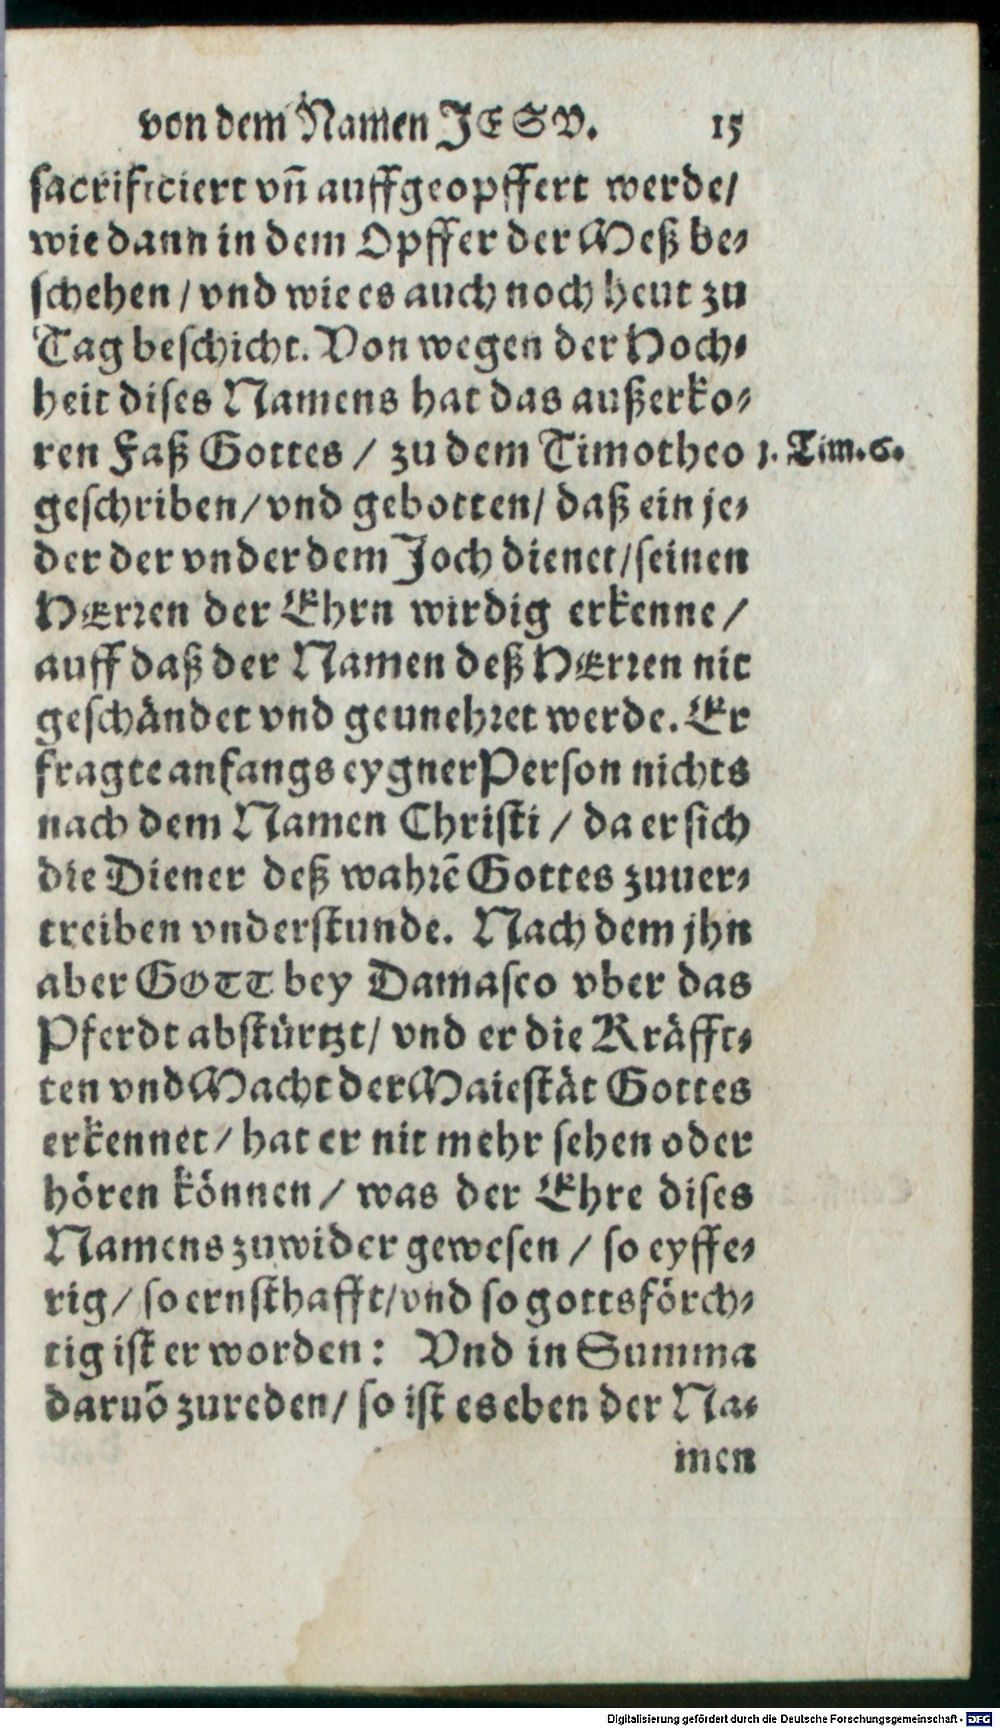 von dem Namen JESV. 15
sacrificiert vñ auffgeopffert werde/
wie dann in dem Opffer der Meß be-
schehen / vnd wie es auch noch heut zu
Tag beschicht. Von wegen der Hoch-
heit dises Namens hat das außerko-
ren Faß Gottes / zu dem Timotheo 1. Tim. 6.
geschriben/vnd gebotten/ daß ein je-
der der vnder dem Joch dienet/seinen
HErren der Ehrn wirdig erkenne /
auff daß der Namen deß HErren nit
geschändet vnd geunehret werde. Er
fragte anfangs eygner Person nichts
nach dem Namen Christi / da er sich
die Diener deß wahrē Gottes zuuer-
treiben vnderstunde. Nach dem jhn
aber GOTT bey Damasco vber das
Pferdt abstürtzt/ vnd er die Kräfft-
ten vnd Macht der Maiestät Gottes
erkennet / hat er nit mehr sehen oder
hören können / was der Ehre dises
Namens zuwider gewesen / so eyffe-
rig / so ernsthafft/vnd so gottsförch-
tig ist er worden: Vnd in Summa
daruõ zureden/ so ist es eben der Na-
men
Digitalisierung gefördert durch die Deutsche Forschungsgemeinschaft - DFG